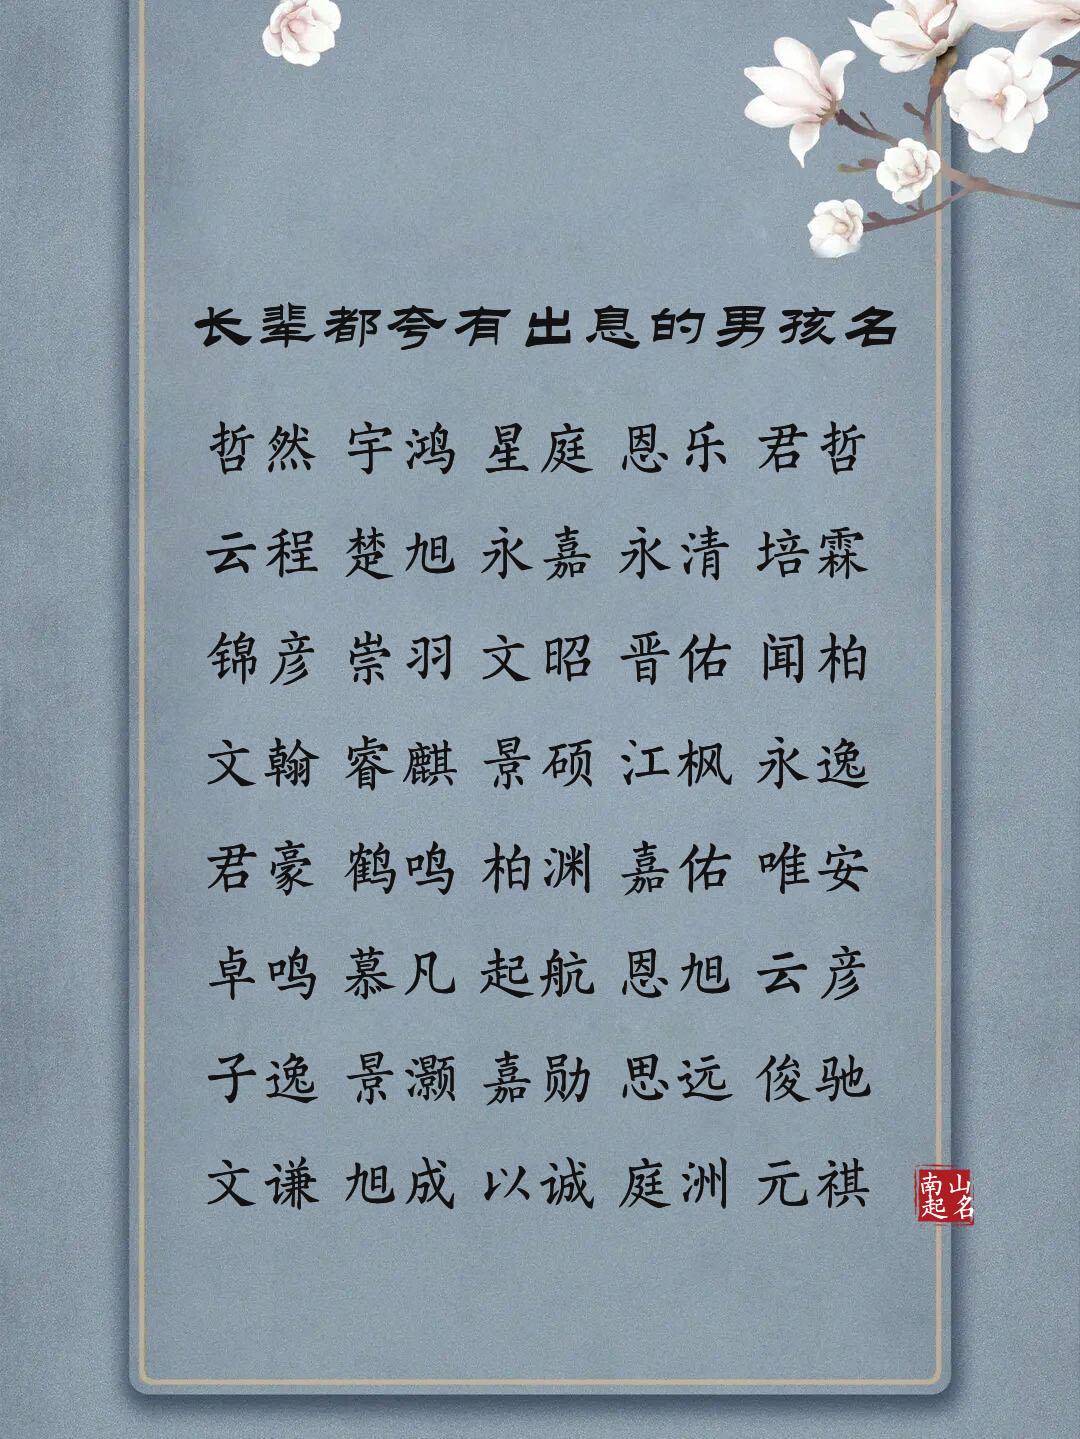 长辈都夸有出息的男孩名
哲然 宇鸿 星庭 恩乐 君哲
云程 楚旭 永嘉 永清 培霖
锦彦 崇羽 文昭 晋佑 闻柏
文翰 睿麒 景硕 江枫 永逸
君豪 鹤鸣 柏渊 嘉佑 唯安
卓鸣 慕凡 起航 恩旭 云彦
子逸 景灏 嘉勋 思远 俊驰
文谦 旭成 以诚 庭洲 元祺
南山
起名